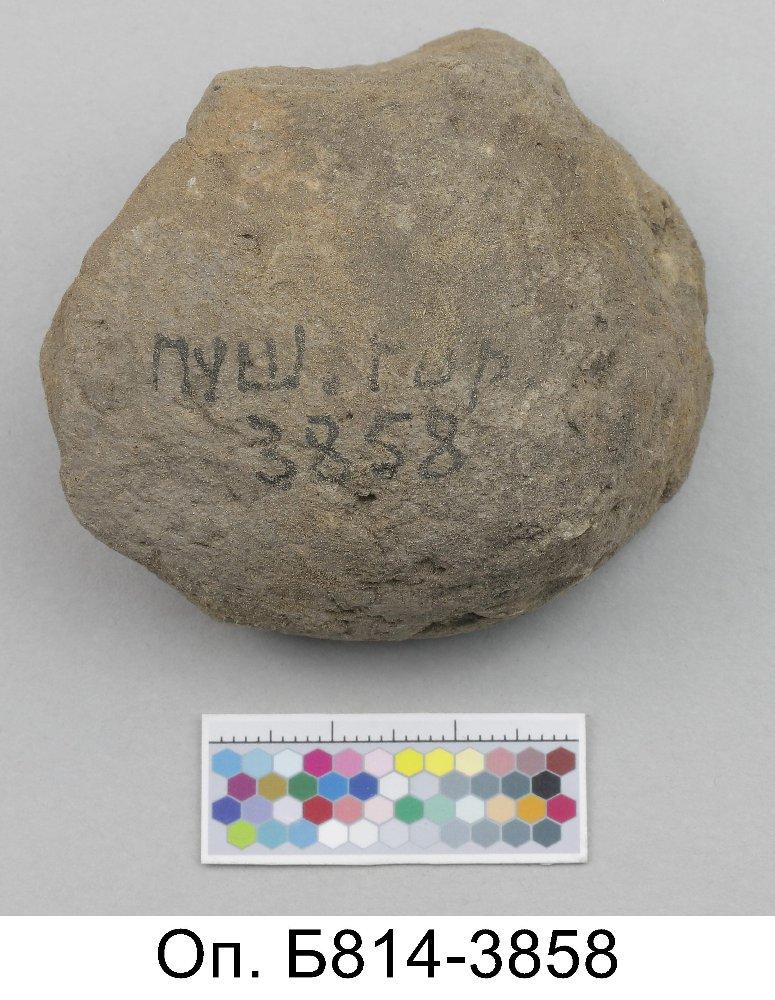 пуш. гор.
3858
Оп. Б814-3858